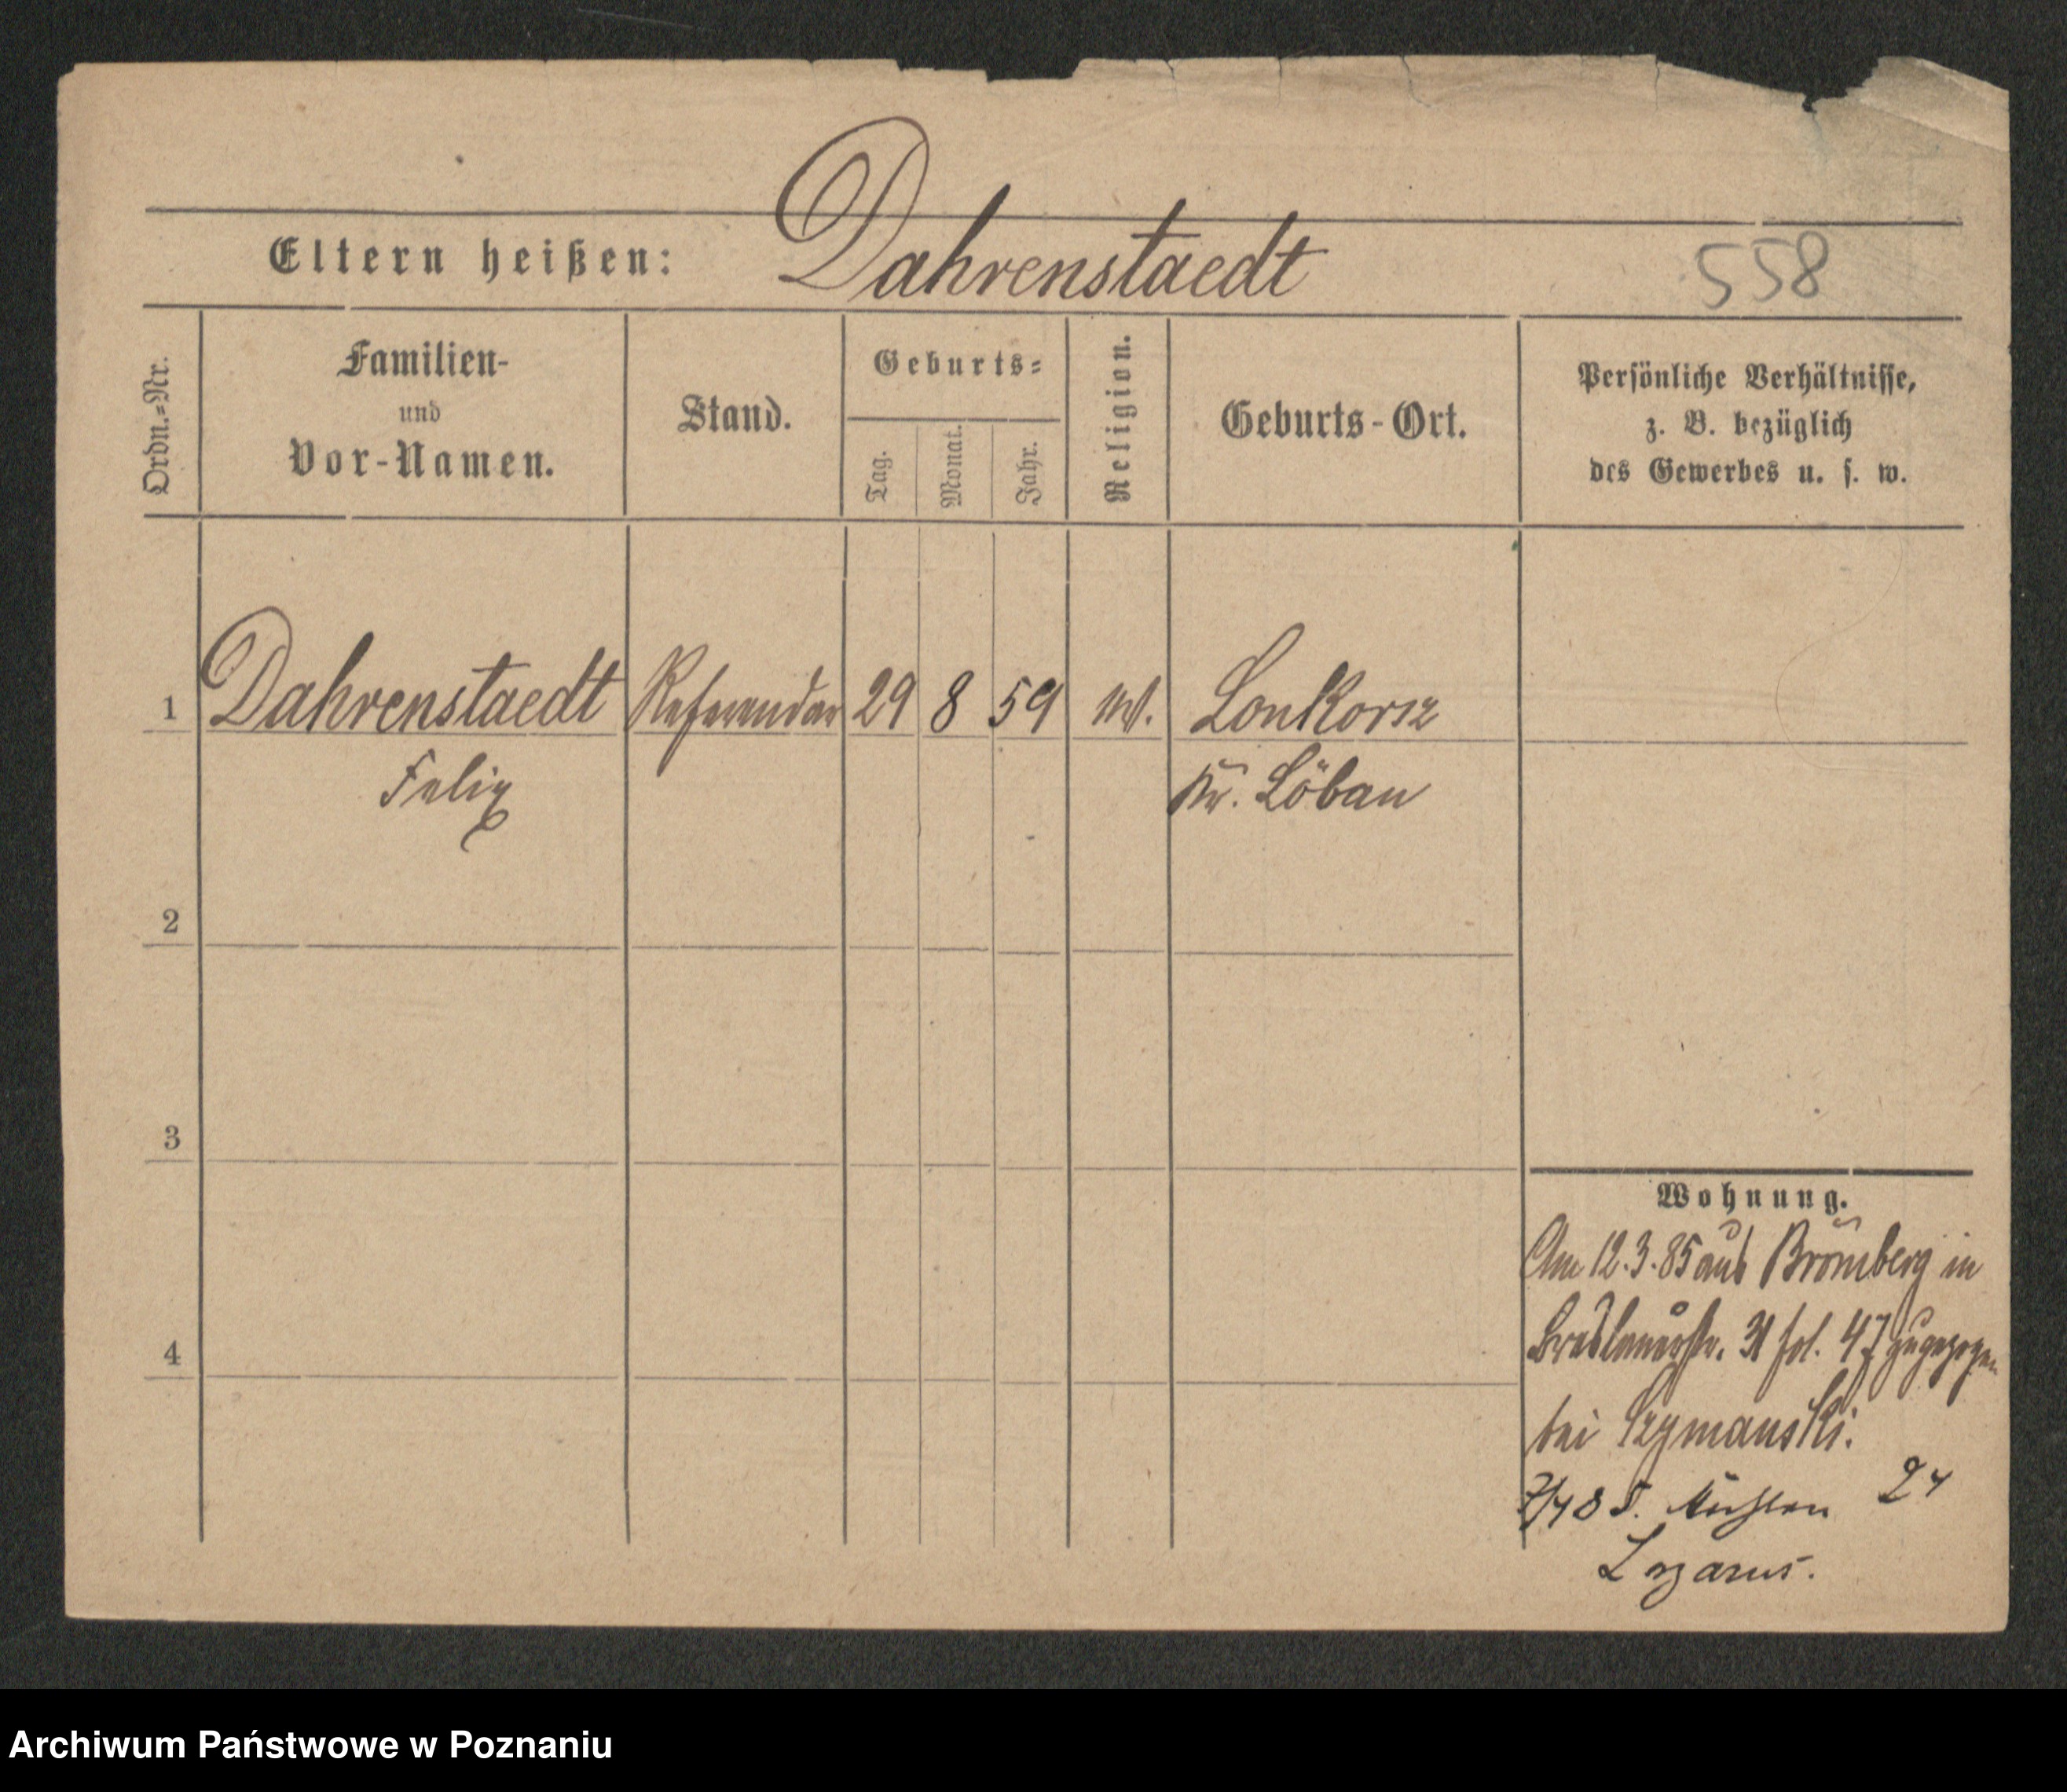 Eltern heißen: Dahrenstaedt 558
Ordn.=Nr.
Familien-
und
Vor-Namen.
Stand.
Geburts=
Tag.
Monat.
Jahr.
Religion.
Geburts-Ort.
Persönliche Verhältnisse,
z. B. bezüglich
des Gewerbes u. s. w.
1 Dahrenstaedt Referendar 29 8 59 Lonkorsz
Felix Kr. Löbau
2
3
4
Wohnung.
Am 12.3.85 aus Bromberg in
Breslauerstr. 31 fol. 47 zugezogen
bei Szymanski.
7/4 85. Mühlen 24
Lazarus.
Archiwum Państwowe w Poznaniu